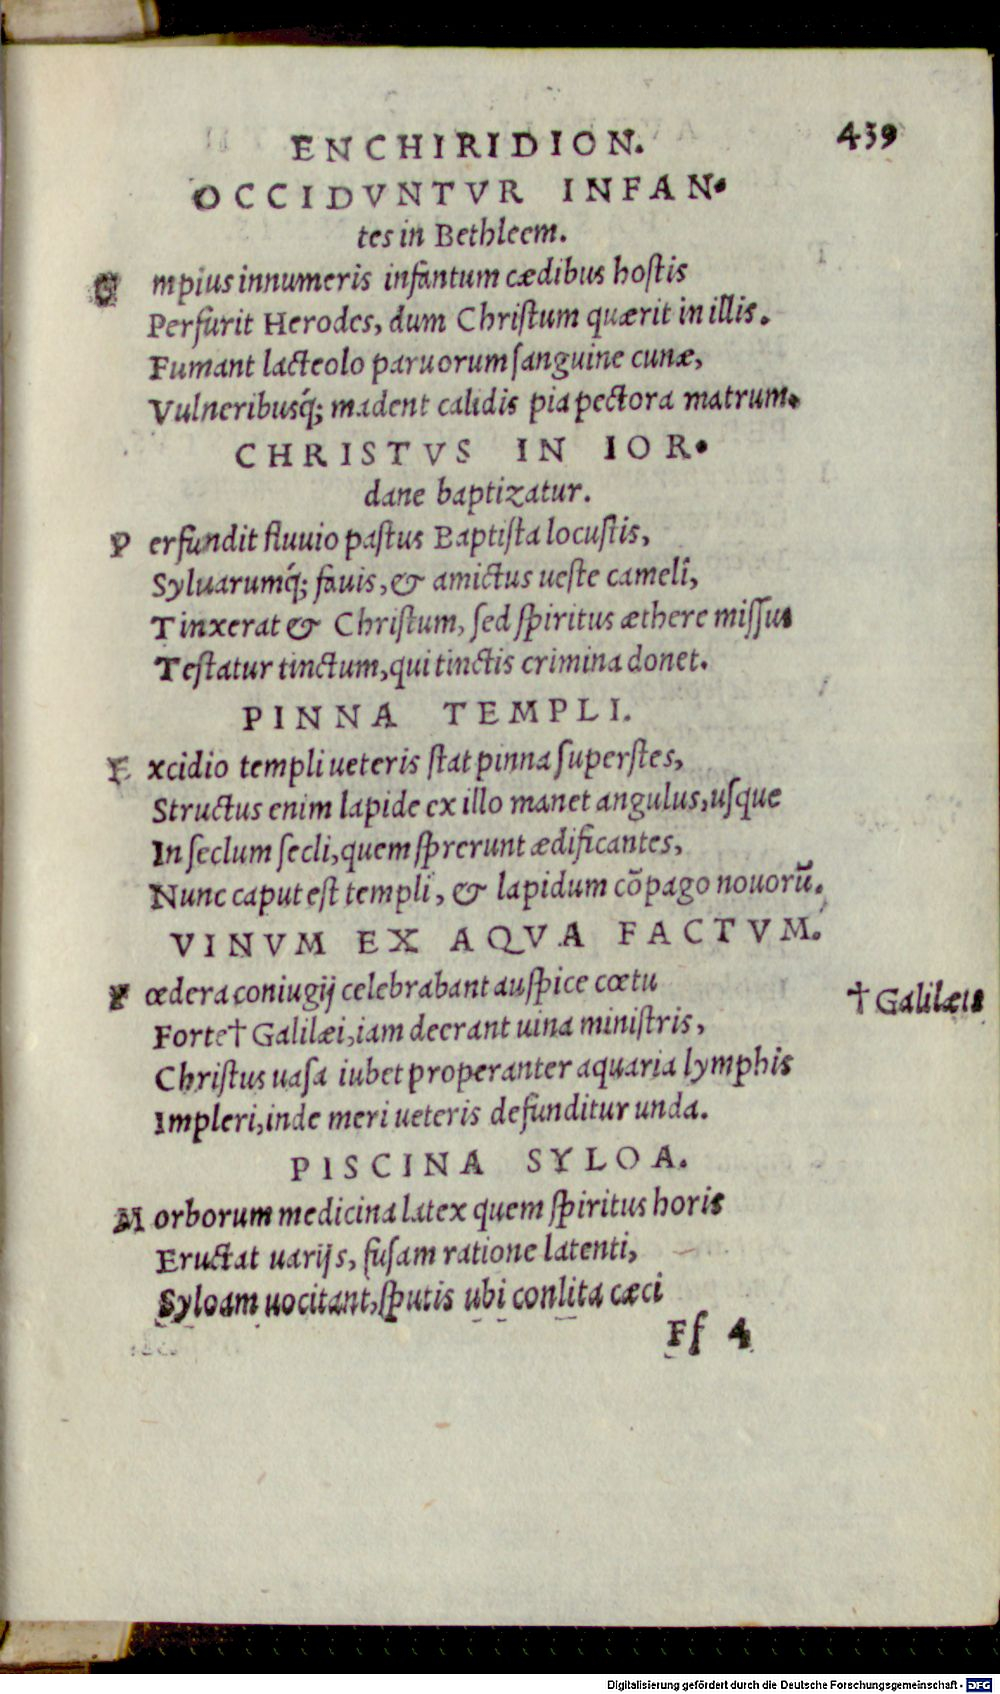 ENCHIRIDION. 439
OCCIDVNTVR INFAN-
tes in Bethleem.
mpius innumeris infantum cædibus hoſtis
Perfurit Herodes, dum Chriſtum quærit in illis.
Fumant lacteolo paruorum ſanguine cunæ,
Vulneribusq́; madent calidis pia pectora matrum.
CHRISTVS IN IOR-
dane baptizatur.
P erfundit fluuio paſtus Baptiſta locuſtis,
Syluarumq́; fauis, & amictus ueſte cameli,
Tinxerat & Chriſtum, ſed ſpiritus æthere miſſus
Teſtatur tinctum, qui tinctis crimina donet.
PINNA TEMPLI.
E xcidio templi ueteris ſtat pinna ſuperſtes,
Structus enim lapide ex illo manet angulus, uſque
In ſeclum ſecli, quem ſprerunt ædificantes,
Nunc caput eſt templi, & lapidum cõpago nouorũ.
VINVM EX AQVA FACTVM.
F œdera coniugij celebrabant auſpice cœtu
Forte † Galilæi, iam deerant uina miniſtris, † Galilæis
Chriſtus uaſa iubet properanter aquaria lymphis
Impleri, inde meri ueteris defunditur unda.
PISCINA SYLOA.
M orborum medicina latex quem ſpiritus horis
Eructat uarijs, fuſam ratione latenti,
Syloam uocitant, ſputis ubi conlita cæci
Ff 4
Digitalisierung gefördert durch die Deutsche Forschungsgemeinschaft - DFG